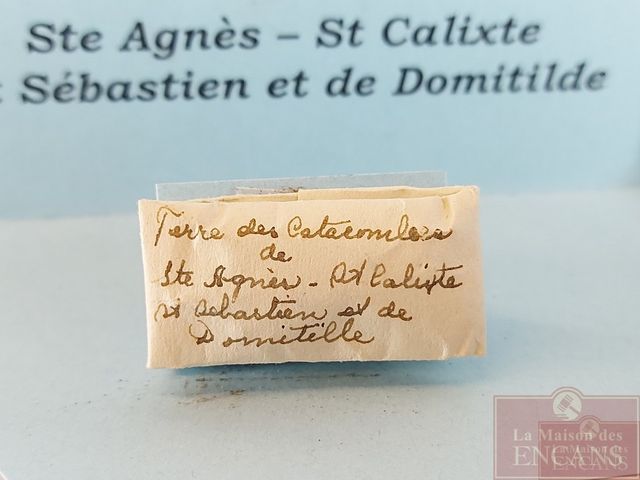 Ste Agnès – St Calixte
t Sébastien et de Domitilde
Terre des Catacombes
de
Ste Agnès - St Calixte
St Sebastien et de
Domitille
La Maison des
ENCANS
La Maison des
ENCANS